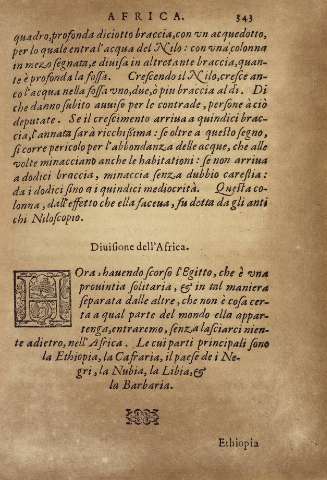 AFRICA. 343
quadro, profonda diciotto braccia, con vn acquedotto,
per lo quale entra l'acqua del Nilo: con vna colonna
in mezo segnata, e diuisa in altretante braccia, quan-
te è profonda la fossa. Crescendo il Nilo, cresce an-
co l'acqua nella fossa vno, due, ò piu braccia al dì. Di
che danno subito auuiso per le contrade, persone à ciò
deputate. Se il crescimento arriua a quindici brac-
cia, l'annata sarà ricchissima: se oltre a questo segno,
si corre pericolo per l'abbondanza delle acque, che alle
volte minacciano anche le habitationi: se non arriua
a dodici braccia, minaccia senza dubbio carestia:
da i dodici sino a i quindici mediocrità. Questa co-
lonna, dall'effetto che ella faceua, fu detta da gli anti
chi Niloscopio.
Diuisione dell'Africa.
HOra, hauendo scorso l'Egitto, che è vna
prouintia solitaria, & in tal maniera
separata dalle altre, che non è cosa cer-
ta a qual parte del mondo ella appar-
tenga, entraremo, senza lasciarci nien-
te adietro, nell'Africa. Le cui parti principali sono
la Ethiopia, la Cafraria, il paese de i Ne-
gri, la Nubia, la Libia, &
la Barbaria.
Ethiopia